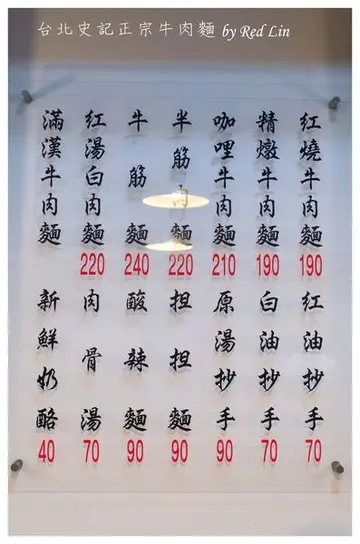 台北史記正宗牛肉麵 by Red Lin
紅燒牛肉麵
190
精燉牛肉麵
190
咖哩牛肉麵
210
半筋肉麵
220
牛筋麵
240
紅湯白肉麵
220
滿漢牛肉麵
紅油抄手
70
白油抄手
70
原湯抄手
90
担担麵
90
酸辣麵
90
肉骨湯
70
新鮮奶酪
40